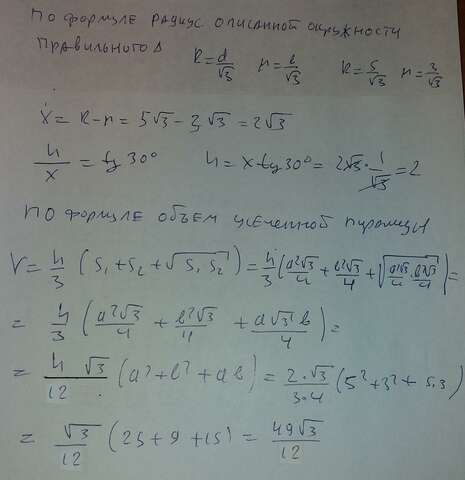 По формуле радиус описанной окружности
правильного Δ R = a/√3 r = b/√3 R = 5/√3 r = 3/√3
x = R - r = 5√3 - 3√3 = 2√3
h/x = tg 30° h = x tg 30° = 2√3 · 1/√3 = 2
По формуле объем усеченной пирамиды
V = h/3 (S₁ + S₂ + √(S₁ S₂)) = h/3 (a²√3/4 + b²√3/4 + √(a²√3/4 · b²√3/4)) =
= h/3 (a²√3/4 + b²√3/4 + a√3 b/4) =
= h √3/12 (a² + b² + ab) = 2·√3/3·4 (5² + 3² + 5·3)
= √3/12 (25 + 9 + 15) = 49√3/12